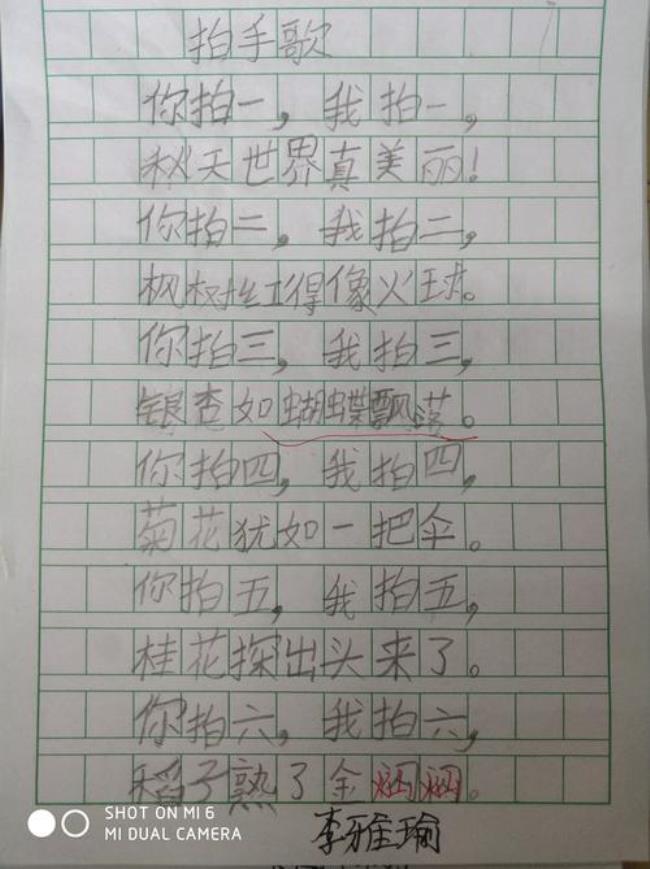 拍手歌
你拍一，我拍一，
秋天世界真美丽！
你拍二，我拍二，
枫树红得像火球。
你拍三，我拍三，
银杏如蝴蝶飘落。
你拍四，我拍四，
菊花犹如一把伞。
你拍五，我拍五，
桂花探出头来了。
你拍六，我拍六，
稻子熟了金
李雅瑜
SHOT ON MI 6
MI DUAL CAMERA